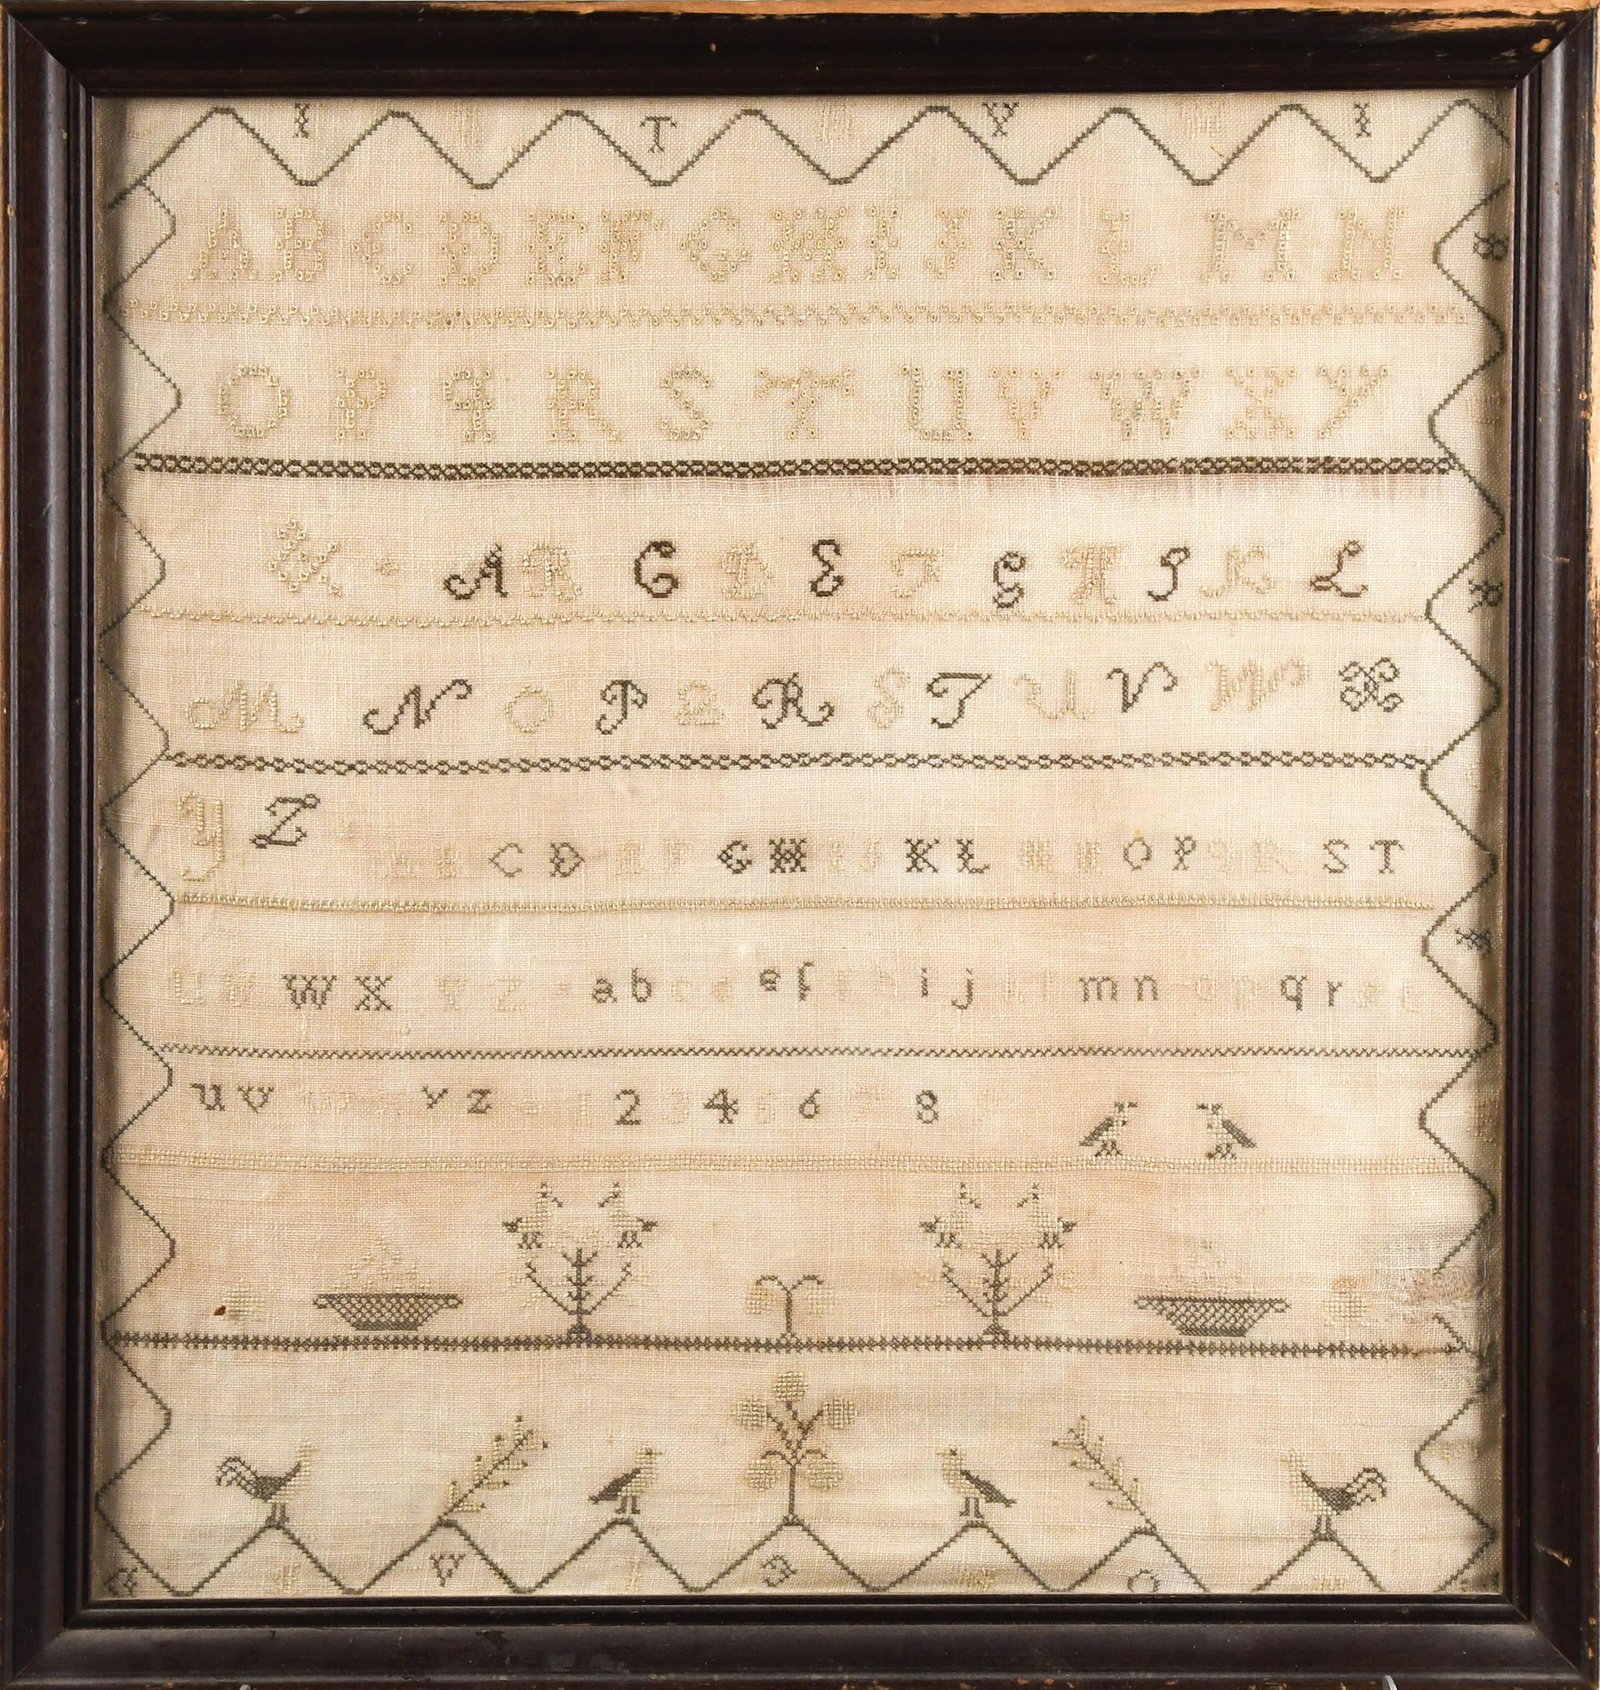 I T V I
A B C D E F G H I J K L M N
O P q R S T U V W X Y
& A B C D E F G H I K L
M N O P Q R S T U V W X
Y Z A B C D E F G H I J K L M N O P Q R S T
U V W X Y Z a b c d e f g h i j k l m n o p q r s t
u v w x y z 1 2 3 4 5 6 7 8